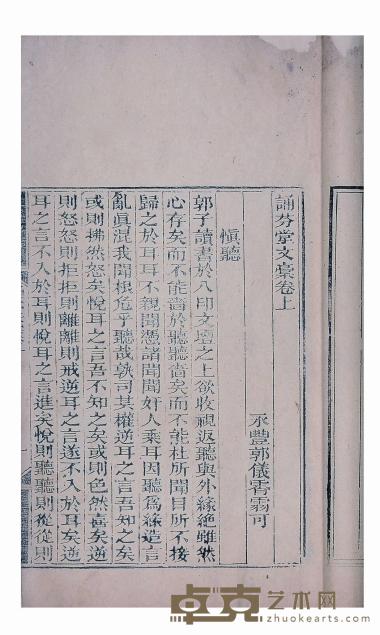 誦芬堂文稾卷上
永豐郭儀霄羽可
慎聽
郭子讀書於八印文壇之上欲收視返聽與外緣絶雖然
心存矣而不能啬於聽聽啬矣而不能杜所聞目所不接
歸之於耳耳不親聞憑諸聞聞奸人乘耳因聽爲緣造言
亂真混我聞根危乎聽哉孰司某權逆耳之言吾知之矣
或則拂然怒矣悅耳之言吾不知之矣或則色然喜矣逆
則怒怒則拒拒則離離則戒逆耳之言遂不入於耳矣逆
耳之言不入於耳則悅耳之言進矣悅則聽聽則從從則
卓克艺术网
zhuokearts.com